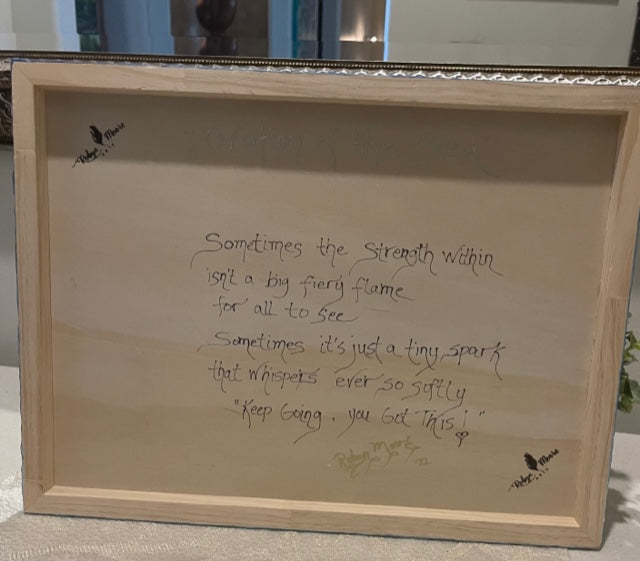 Robyn Moore
of the Sea
Sometimes the Strength within
isn't a big fiery flame
for all to see
Sometimes it's just a tiny spark
that whispers ever so softly
"Keep Going, you Got This!"
Robyn Moore
Robyn Moore